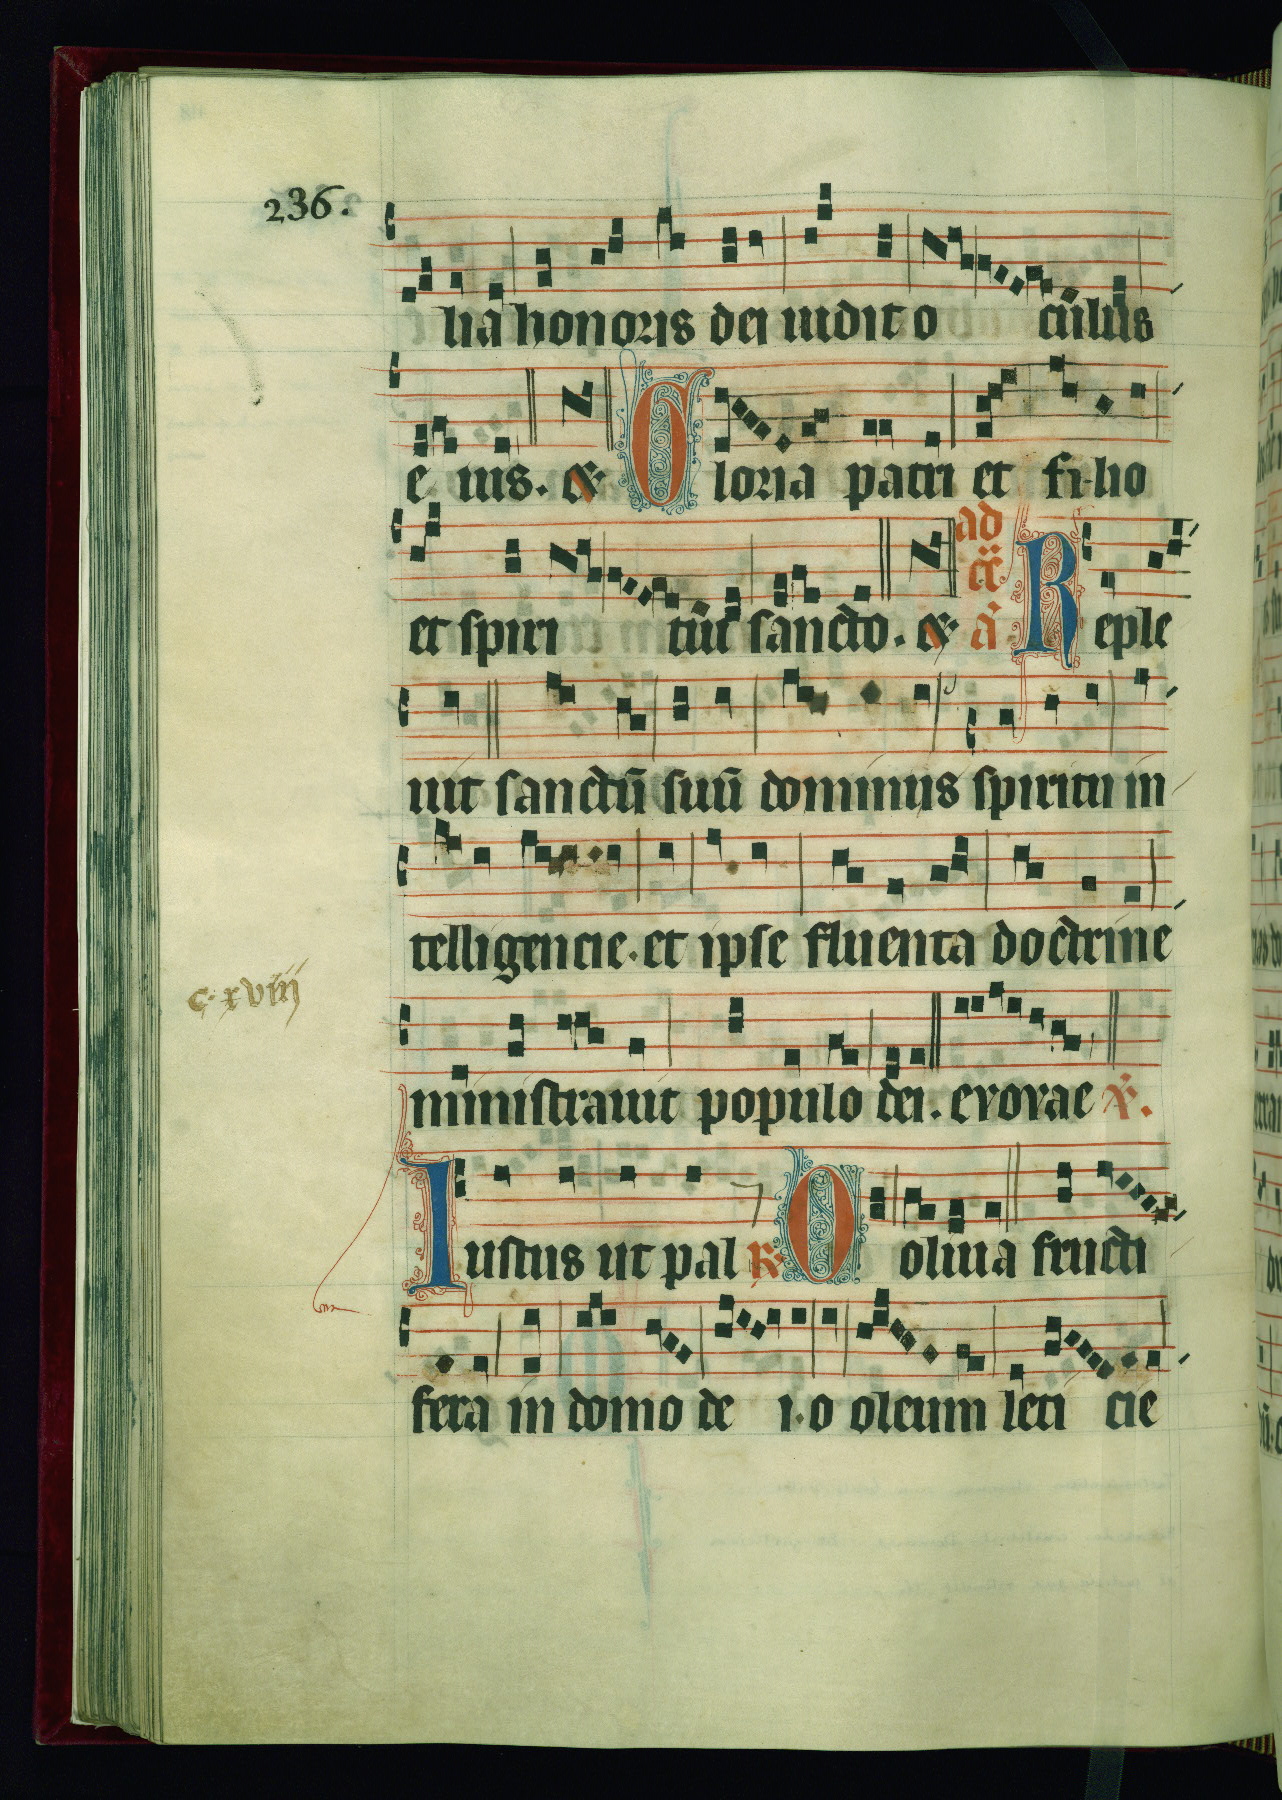 236.
lia honoris dei uidit o culus
e ius. & Gloria patri et filio
et spiri tui sancto. & ad cā a Reple
uit sanctū suū dominus spiritu in
telligencie. et ipse fluenta doctrine
c. xviii
ministrauit populo dei. evovae ℣.
Iustus ut pal ℟ O oliua fructi
fera in domo de i. o oleum leti cie